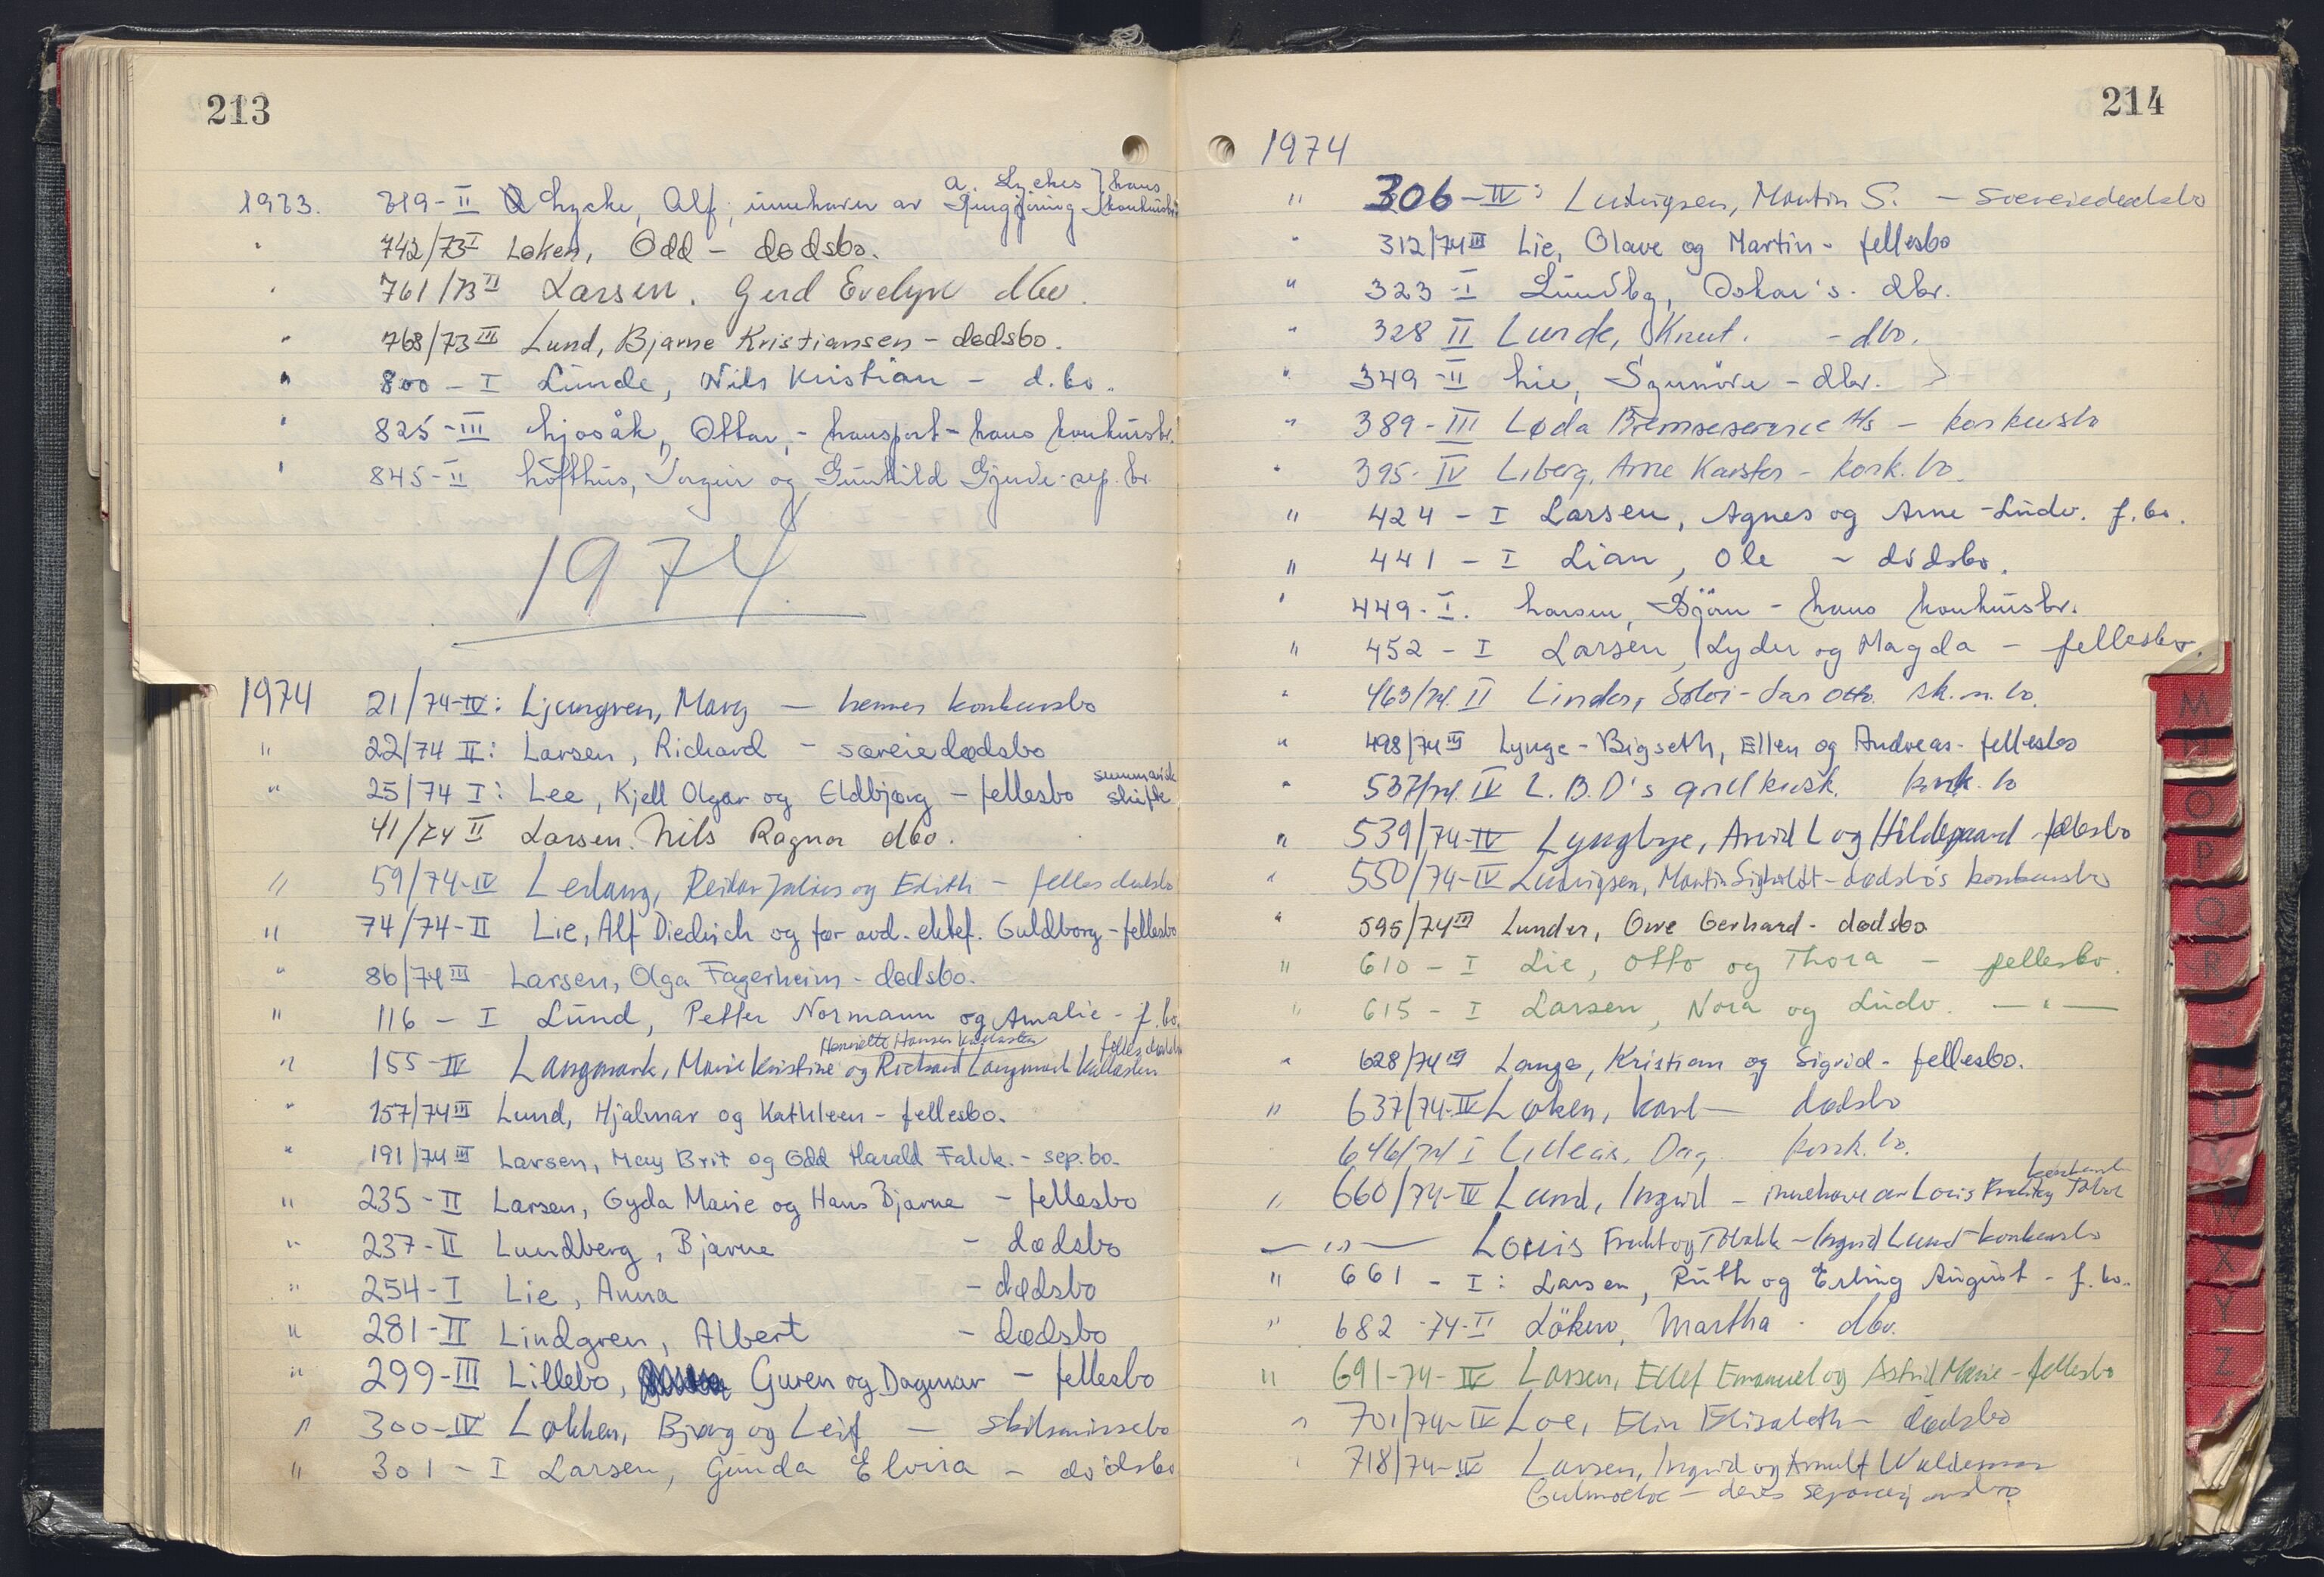 213
a. Lyches } hans
1973. 719-II Lyche, Alf, innehaver av Rengjøring } konkursbo
" 742/73 I Løken, Odd - dødsbo.
" 761/73 II Larsen, Gerd Evelyn dbo.
" 768/73 III Lund, Bjarne Kristiansen - dødsbo.
" 800 - I Lunde, Nils Kristian - d.bo.
" 825-III Ljosåk, Ottar, - transport - hans konkursbo.
" 845-II Lofthus, Jorgeir og Gunhild Gjerde - sep. bo.
1974.
1974 21/74-IV: Ljungren, Mary — hennes konkursbo
" 22/74 II: Larsen, Richard - særeiedødsbo
" 25/74 I: Lee, Kjell Olgar og Eldbjørg - fellesbo summarisk skifte
41/74 II Larsen. Nils Ragnar dbo.
" 59/74-IV Lerlang, Reidar Julius og Edith - felles dødsbo
" 74/74-II Lie, Alf Diedrich og før avd. ektef. Guldborg - fellesbo
" 86/74 III Larsen, Olga Fagerheim - dødsbo.
" 116 - I Lund, Petter Normann og Amalie - f.bo.
Henriette Hansen felles dødsbo
" 155-IV Langmark, Marie Kristine og Richard Langmark
" 157/74 III Lund, Hjalmar og Kathleen - fellesbo.
" 191/74 III Larsen, May Brit og Odd Harald Falck. - sep.bo.
" 235-II Larsen, Gyda Marie og Hans Bjarne - fellesbo
" 237-II Lundberg, Bjarne - dødsbo
" 254-I Lie, Anna - dødsbo
" 281-II Lindgren, Albert - dødsbo
" 299-III Lillebo, Guren og Dagmar - fellesbo
" 300-IV Løkken, Bjørg og Leif — skilsmissebo
" 301 - I Larsen, Gunda Elvira - dödsbo
214
1974
" 306-IV: Ludvigsen, Martin S. - særeiedødsbo
" 312/74 III Lie, Olave og Martin - fellesbo
" 323-I Lundby, Oskar's. dbo.
" 328 II Lunde, Knut. - dbo.
" 349-II Lie, Synnöve - dbo.
" 389-III Løda Bremseservice A/s - konkursbo
" 395-IV Liberg, Arne Karsten - konk. bo.
" 424 - I Larsen, Agnes og Arne - Ludv. f.bo.
" 441 - I Lian, Ole - dödsbo.
" 449-I. Larsen, Björn - hans konkursbo.
" 452 - I Larsen, Lyder og Magda - fellesbo.
" 463/74. II Linder, Sølvi - Jan Otto. sk.m.bo.
" 498/74 III Lynge-Bigseth, Ellen og Andreas - fellesbo
" 537/74. IV L.B.D's grill kiosk. konk. bo
" 539/74-IV Lyngbye, Arvid L og Hildegaard - fellesbo
" 550/74-IV Ludvigsen, Martin - dødsbo's konkursbo
" 595/74 III Lunder, Owe Gerhard - dødsbo
" 610 - I Lie, Otto og Thora - fellesbo.
" 615 - I Larsen, Nora og Ludv. — " —
" 628/74 III Lange, Kristian og Sigrid - fellesbo.
" 637/74-IV Løken, Karl — dødsbo
646/74 I Lilleås, Dag konk. bo.
konkursbo
" 660/74-IV Lund, Ingrid - innehaver av Louis Frukt og Tobak
— " — Louis Frukt og Tobakk - Ingrid Lund - konkursbo
" 661 - I: Larsen, Ruth og Erling August - f.bo.
" 682 -74-II Löken, Martha - dbo.
" 691-74-IV Larsen, Ellef Emanuel og Astrid Marie - fellesbo
" 701/74-IV Loe, Elin Elisabeth - dødsbo
" 718/74-IV Larsen, Ingrid og Arnulf Waldemar
- deres
M
O
P
Q
R
T
U
V
W
X
Y
Z